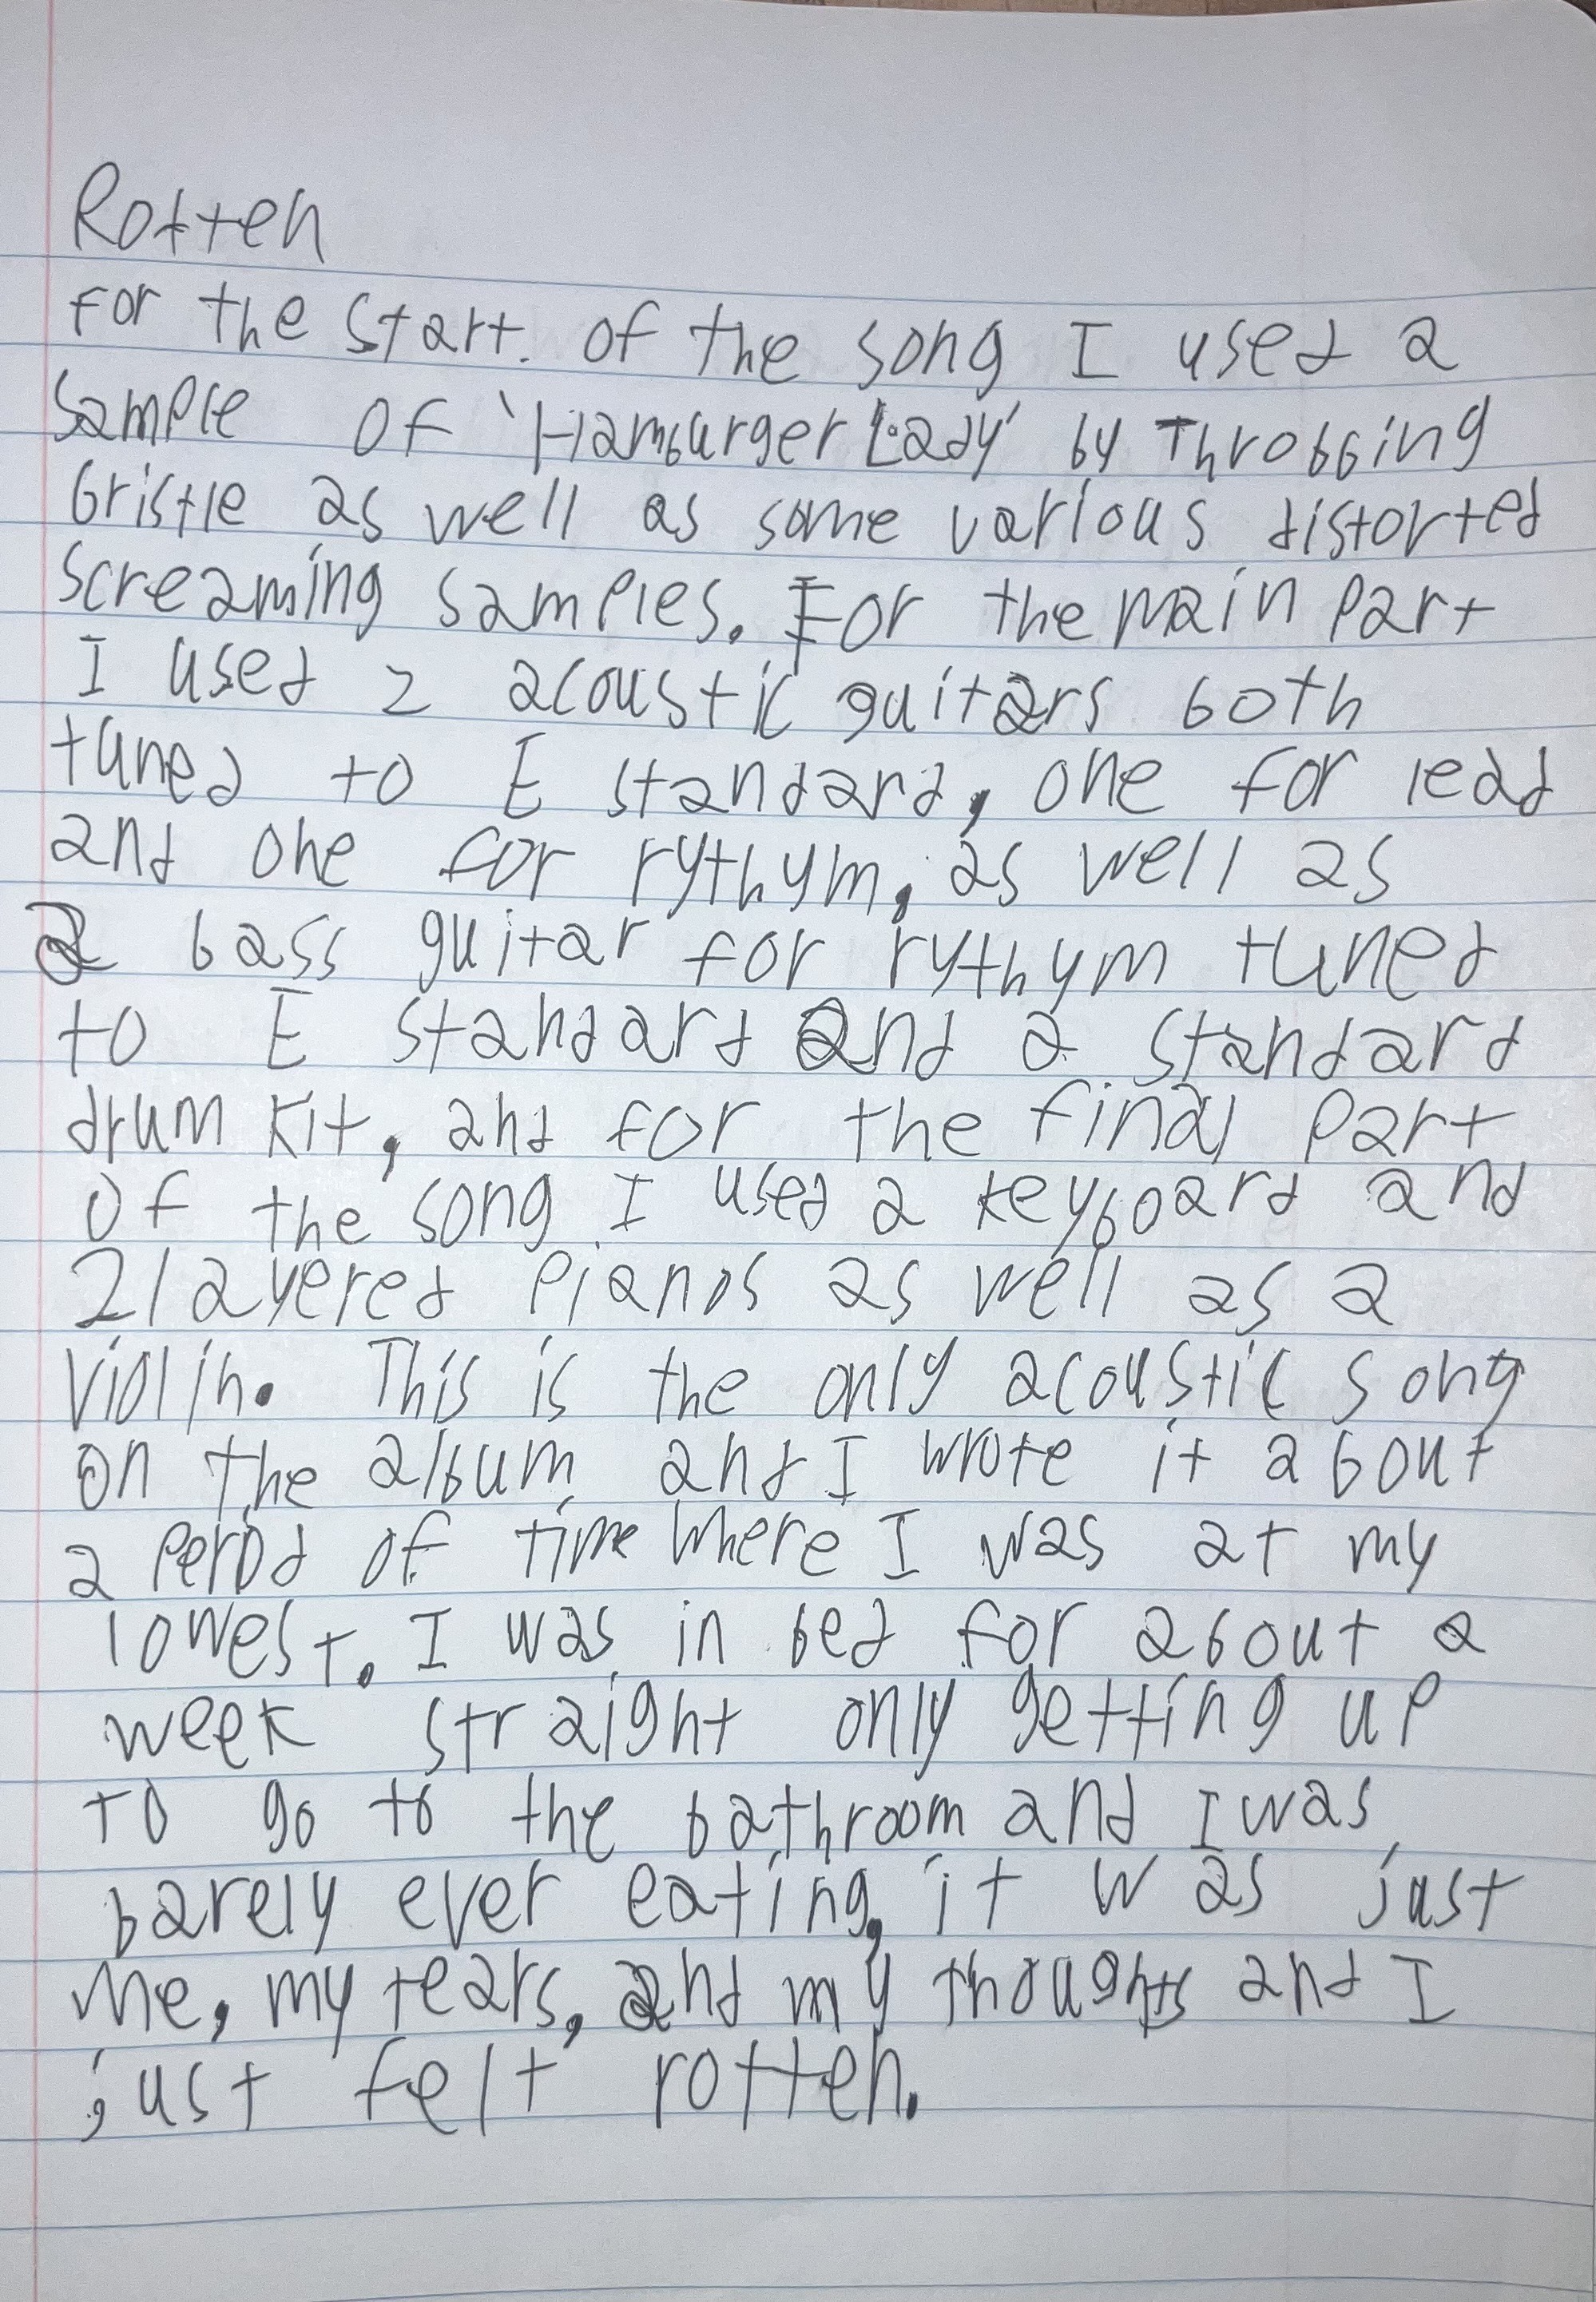 Rotten
For the start of the song I used a
sample of 'Hamburger Lady' by Throbbing
Gristle as well as some various distorted
screaming samples. For the main part
I used 2 acoustic guitars both
tuned to E standard, one for lead
and one for rythym, as well as
a bass guitar for rythym tuned
to E standard and a standard
drum kit, and for the final part
of the song I used a keyboard and
2 layered pianos as well as a
violin. This is the only acoustic song
on the album and I wrote it about
a period of time where I was at my
lowest. I was in bed for about a
week straight only getting up
to go to the bathroom and I was
barely ever eating, it was just
me, my tears, and my thoughts and I
just felt rotten.